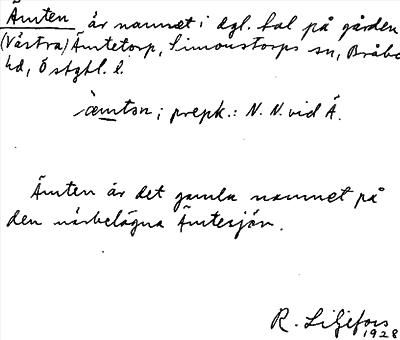 Ämten är namnet i dgl. tal på gården
(Västra) Ämtetorp, Simonstorps sn, Bråbo
hd, Östgtl. l.
æmtən; prepk.: N. N. vid Ä.
Ämten är det gamla namnet på
den närbelägna Ämtesjön.
R. Liljefors
1928